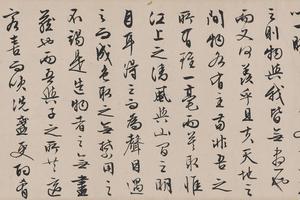 之則物與我皆無盡也
而又何羨乎且夫天地之
間物各有主苟非吾之
所有雖一毫而莫取惟
江上之清風與山間之明
月耳得之而為聲目遇
之而成色取之無禁用之
不竭是造物者之無盡
藏也而吾與子之所共適
客喜而笑洗盞更酌肴